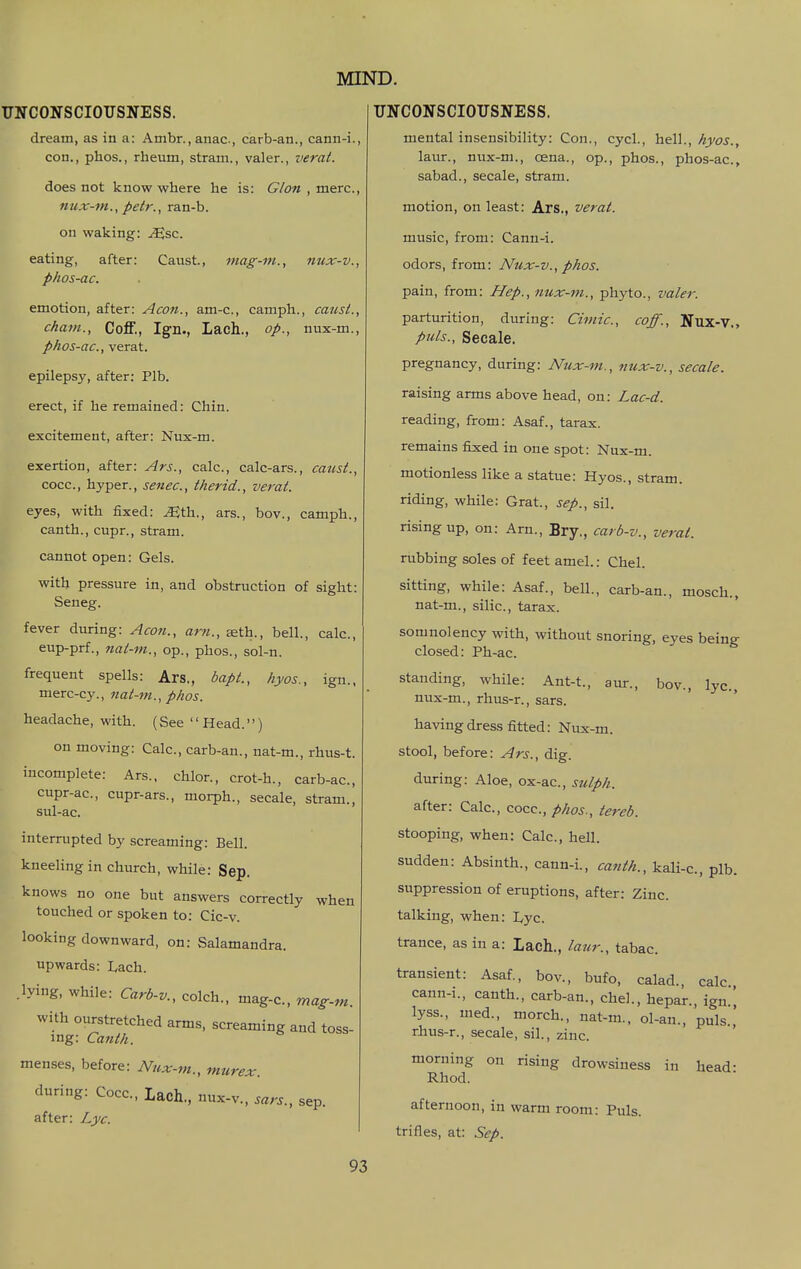 MIND.
UNCONSCIOUSNESS.
dream, as in a: Ambr., anac., carb-an., cann-i.,
con., phos., rheum, stram., valer., verat.
does not know where he is: Glon , merc.,
nux-m., petr., ran-b.
on waking: Æsc.
eating, after: Caust., mag-m., nux-v.,
phos-ac.
emotion, after: Acon., am-c., camph., caust.,
cham., Coff., Ign., Lach., op., nux-m.,
phos-ac., verat.
epilepsy, after: Plb.
erect, if he remained: Chin.
excitement, after: Nux-m.
exertion, after: Ars., calc., calc-ars., caust.,
cocc., hyper., senec., therid., verat.
eyes, with fixed: Æth., ars., bov., camph.,
canth., cupr., stram.
cannot open: Gels.
with pressure in, and obstruction of sight:
Seneg.
fever during: Acon., arn., æth., bell., calc.,
eup-prf., nat-m., op., phos., sol-n.
frequent spells: Ars., bapt., hyos., ign.,
merc-cy., nat-m., phos.
headache, with. (See "Head.")
on moving: Calc., carb-an., nat-m., rhus-t.
incomplete: Ars., chlor., crot-h., carb-ac.,
cupr-ac., cupr-ars., morph., secale, stram.,
sul-ac.
interrupted by screaming: Bell.
kneeling in church, while: Sep.
knows no one but answers correctly when
touched or spoken to: Cic-v.
looking downward, on: Salamandra.
upwards: Lach.
lying, while: Carb-v., colch., mag-c., mag-m.
with ourstretched arms, screaming and toss-
ing: Canth.
menses, before: Nux-m., murex.
during: Cocc., Lach., nux-v., sars., sep.
after: Lyc.
UNCONSCIOUSNESS.
mental insensibility: Con., cycl., hell., hyos.,
laur., nux-m., œna., op., phos., phos-ac.,
sabad., secale, stram.
motion, on least: Ars., verat.
music, from: Cann-i.
odors, from: Nux-v., phos.
pain, from: Hep., nux-m., phyto., valer.
parturition, during: Cimic., coff., Nux-v.,
puls., Secale.
pregnancy, during: Nux-m., nux-v., secale.
raising arms above head, on: Lac-d.
reading, from: Asaf., tarax.
remains fixed in one spot: Nux-m.
motionless like a statue: Hyos., stram.
riding, while: Grat., sep., sil.
rising up, on: Arn., Bry., carb-v., verat.
rubbing soles of feet amel.: Chel.
sitting, while: Asaf., bell., carb-an., mosch.,
nat-m., silic., tarax.
somnolency with, without snoring, eyes being
closed: Ph-ac.
standing, while: Ant-t., aur., bov., lyc.,
nux-m., rhus-r., sars.
having dress fitted: Nux-m.
stool, before: Ars., dig.
during: Aloe, ox-ac., sulph.
after: Calc., cocc., phos., tereb.
stooping, when: Calc., hell.
sudden: Absinth., cann-i., canth., kali-c., plb.
suppression of eruptions, after: Zinc.
talking, when: Lyc.
trance, as in a: Lach., laur., tabac.
transient: Asaf., bov., bufo, calad., calc.,
cann-i., canth., carb-an., chel., hepar., ign.,
lyss., med., morch., nat-m., ol-an., puls.,
rhus-r., secale, sil., zinc.
morning on rising drowsiness in head:
Rhod.
afternoon, in warm room: Puls.
trifles, at: Sep.
93